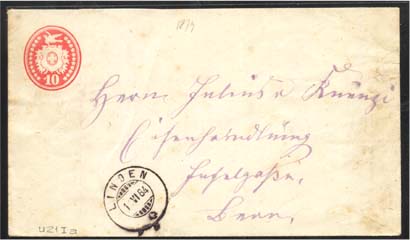 1879
10
Herrn Julius v Künzi
Eisenhandlung
Inselgasse,
Bern.
LINDEN
1 VI 64
U21Ia